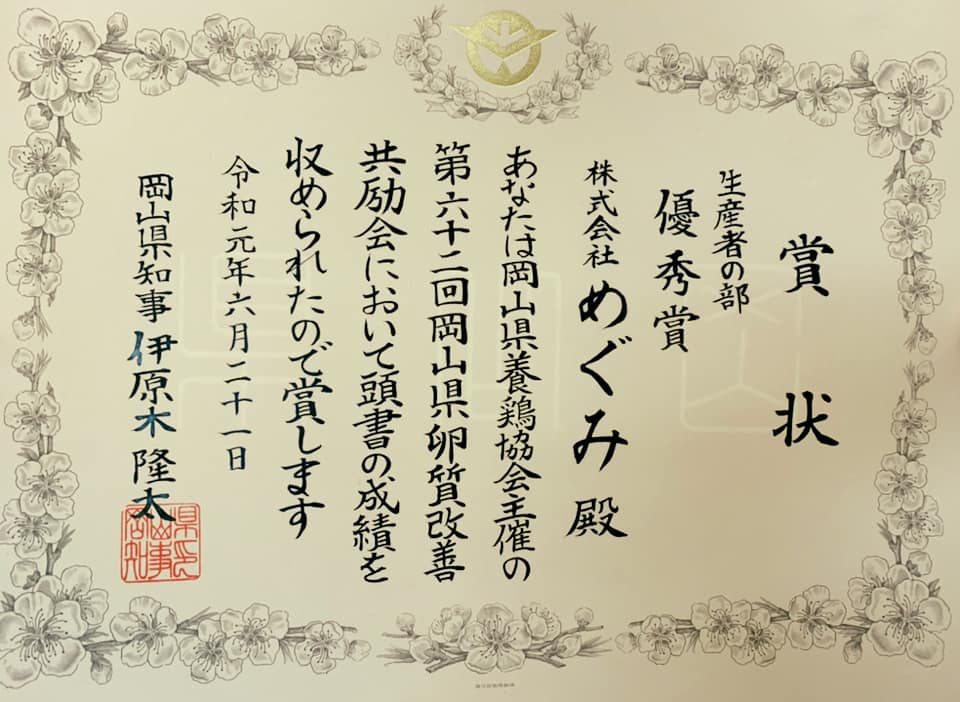 賞状
生産者の部
優秀賞
株式会社 めぐみ 殿
あなたは岡山県養鶏協会主催の
第六十二回岡山県卵質改善
共励会において頭書の成績を
収められたので賞します
令和元年六月二十一日
岡山県知事 伊原木隆太